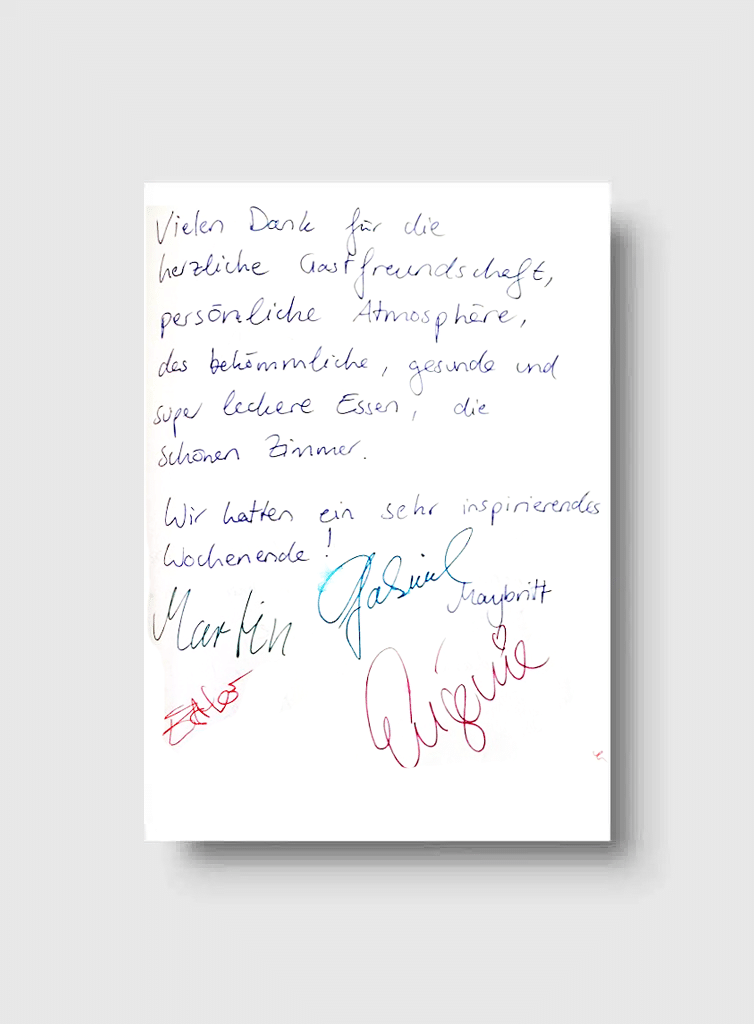 Vielen Dank für die
herzliche Gastfreundschaft,
persönliche Atmosphäre,
das bekömmliche, gesunde und
super leckere Essen, die
schönen Zimmer.
Wir hatten ein sehr inspirierendes
Wochenende!
Gabriel
Maybritt
Martin
Eugénie